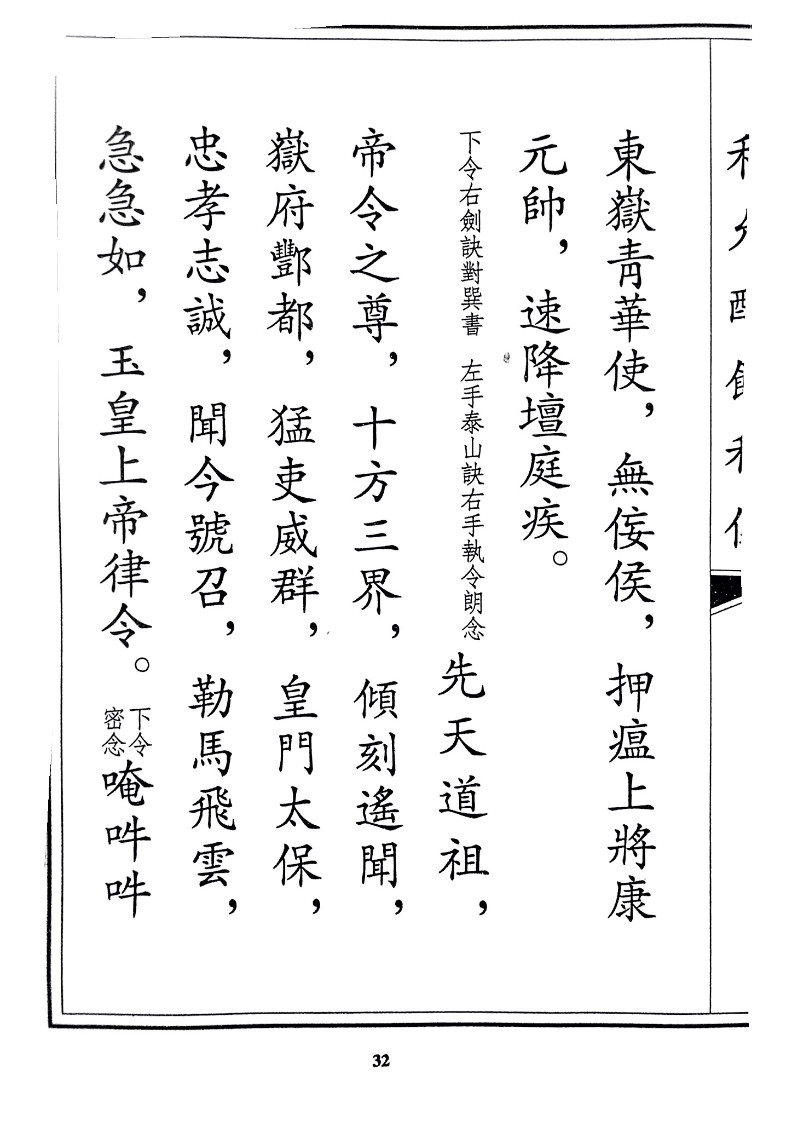 東嶽青華使，無侫侯，押瘟上將康
元帥，速降壇庭疾。
下令右劍訣對巽書　左手泰山訣右手執令朗念　先天道祖，
帝令之尊，十方三界，傾刻遙聞，
嶽府酆都，猛吏威群，皇門太保，
忠孝志誠，聞今號召，勒馬飛雲，
急急如，玉皇上帝律令。下令密念　唵吽吽
32